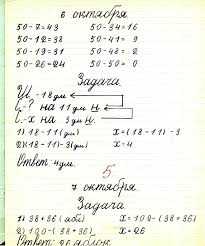 6 октября
50-7=43 50-34=16
50-12=38 50-41=9
50-19=31 50-48=2
50-26=24 50-50=0
Задача
Ш-18дм
-? на 11дм
-х на 3дм
1) 18-11(дм) х=(18-11)-3
2)(18-11)-3(дм) х=4
Ответ 4дм.
5
7 октября
Задача
1) 38+36(ябл) х=100-(38+36)
2) 100-(38+36) х=26
Ответ: 26 яблок